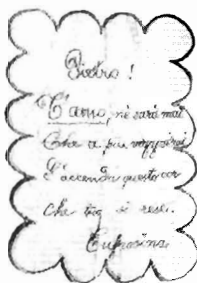 Pietro!
T'amo, nè sarà mai
Che a può
L'accenda questo cor
Che tuo si rese.
Eufrosina